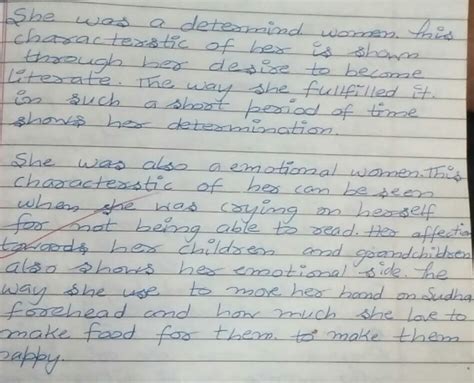 She was a determind women. This
characterstic of her is shown
through her desire to become
literate. The way she fullfilled it
in such a short period of time
shows her determination.
She was also a emotional women. This
characterstic of her can be seen
when she was crying on herself
for not being able to read. Her affection
towards her children and grandchildren
also shows her emotional side. The
way she use to move her hand on Sudha
forehead and how much she love to
make food for them. to make them
happy.